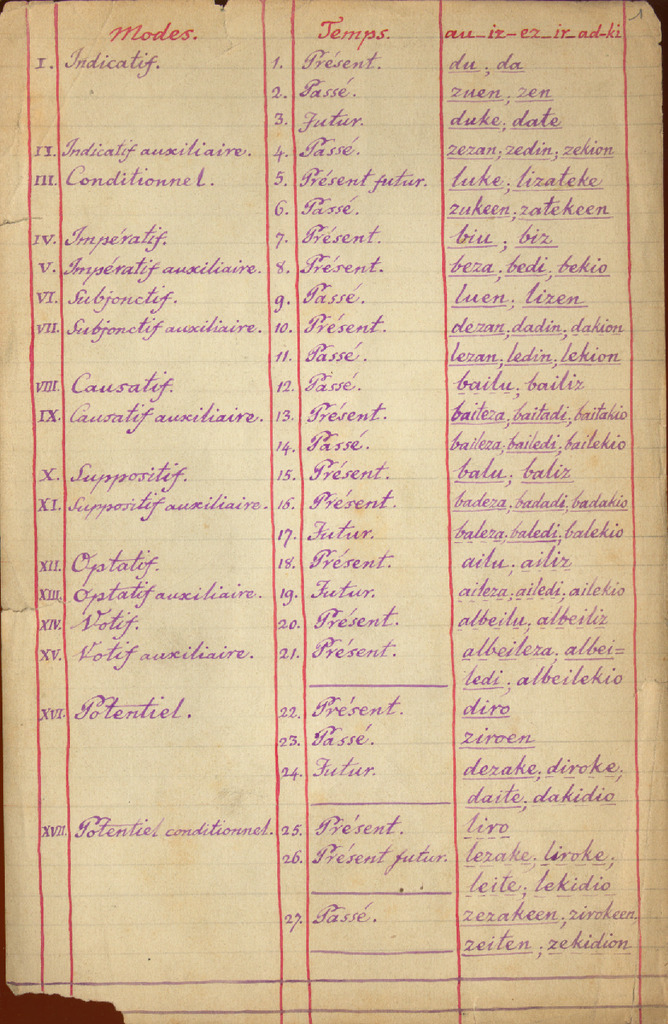 1
Modes. Temps. au-iz-ez-ir-ad-ki
I. Indicatif. 1. Présent. du; da
2. Passé. zuen; zen
3. Futur. duke; date
II. Indicatif auxiliaire. 4. Passé. zezan; zedin; zekion
III. Conditionnel. 5. Présent futur. luke; lizateke
6. Passé. zukeen; zatekeen
IV. Impératif. 7. Présent. biu; biz
V. Impératif auxiliaire. 8. Présent. beza; bedi; bekio
VI. Subjonctif. 9. Passé. luen; lizen
VII. Subjonctif auxiliaire. 10. Présent. dezan; dadin; dakion
11. Passé. lezan; ledin; lekion
VIII. Causatif. 12. Passé. bailu; bailiz
IX. Causatif auxiliaire. 13. Présent. baiteza; baitadi; baitakio
14. Passé. baileza; bailedi; bailekio
X. Suppositif. 15. Présent. balu; baliz
XI. Suppositif auxiliaire. 16. Présent. badeza; badadi; badakio
17. Futur. baleza; baledi; balekio
XII. Optatif. 18. Présent. ailu; ailiz
XIII. Optatif auxiliaire. 19. Futur. aileza; ailedi; ailekio
XIV. Votif. 20. Présent. albeilu; albeiliz
XV. Votif auxiliaire. 21. Présent. albeileza; albei=
ledi; albeilekio
XVI. Potentiel. 22. Présent. diro
23. Passé. ziroen
24. Futur. dezake; diroke;
daite; dakidio
XVII. Potentiel conditionnel. 25. Présent. liro
26. Présent futur. lezake; liroke;
leite; lekidio
27. Passé. zezakeen; zirokeen
zeiten; zekidion